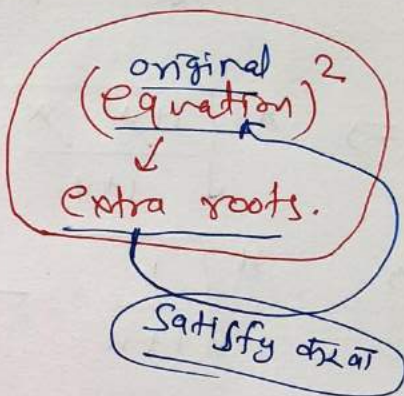 original
(equation)²
↓
extra roots.
Satisfy करवा